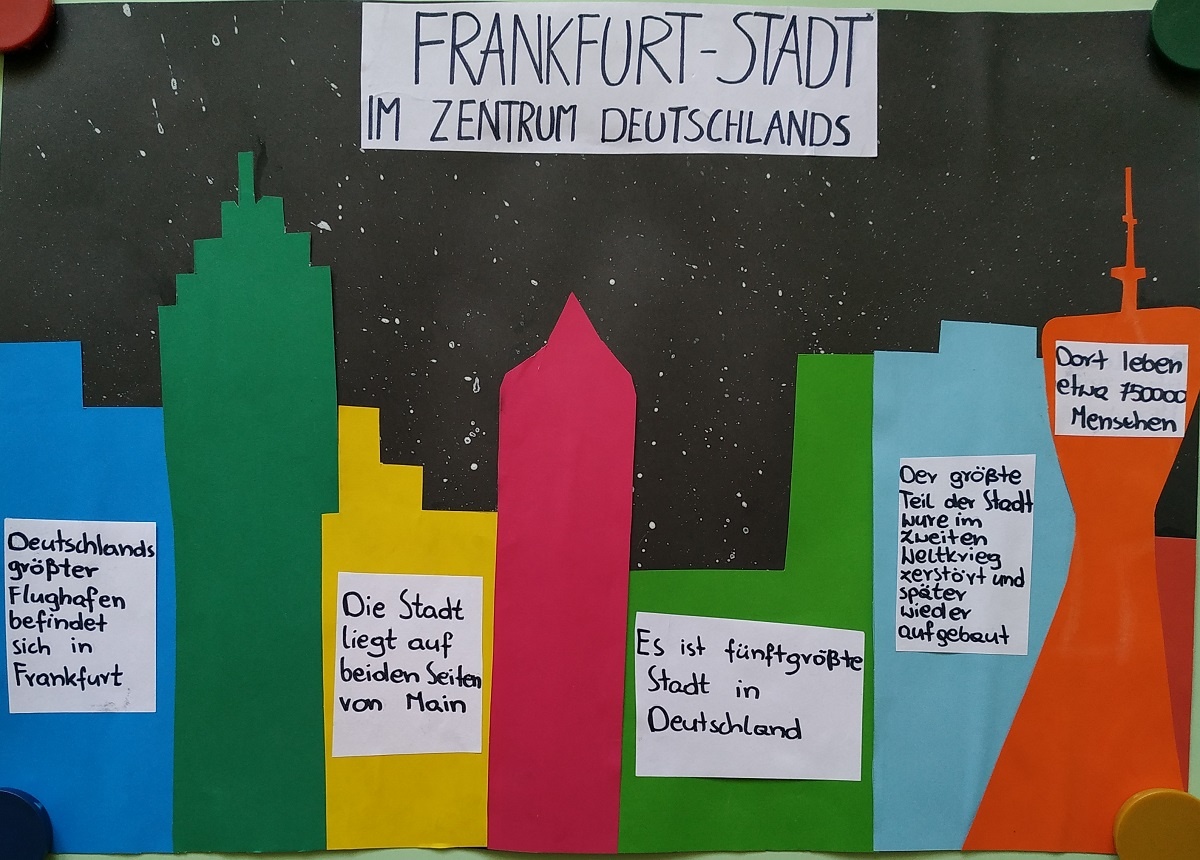 FRANKFURT-STADT
IM ZENTRUM DEUTSCHLANDS
Deutschlands
größter
Flughafen
befindet
sich in
Frankfurt
Die Stadt
liegt auf
beiden Seiten
von Main
Es ist fünftgrößte
Stadt in
Deutschland
Der größte
Teil der Stadt
wure im
zweiten
Weltkrieg
zerstört und
später
wieder
aufgebaut
Dort leben
etwa 750000
Menschen